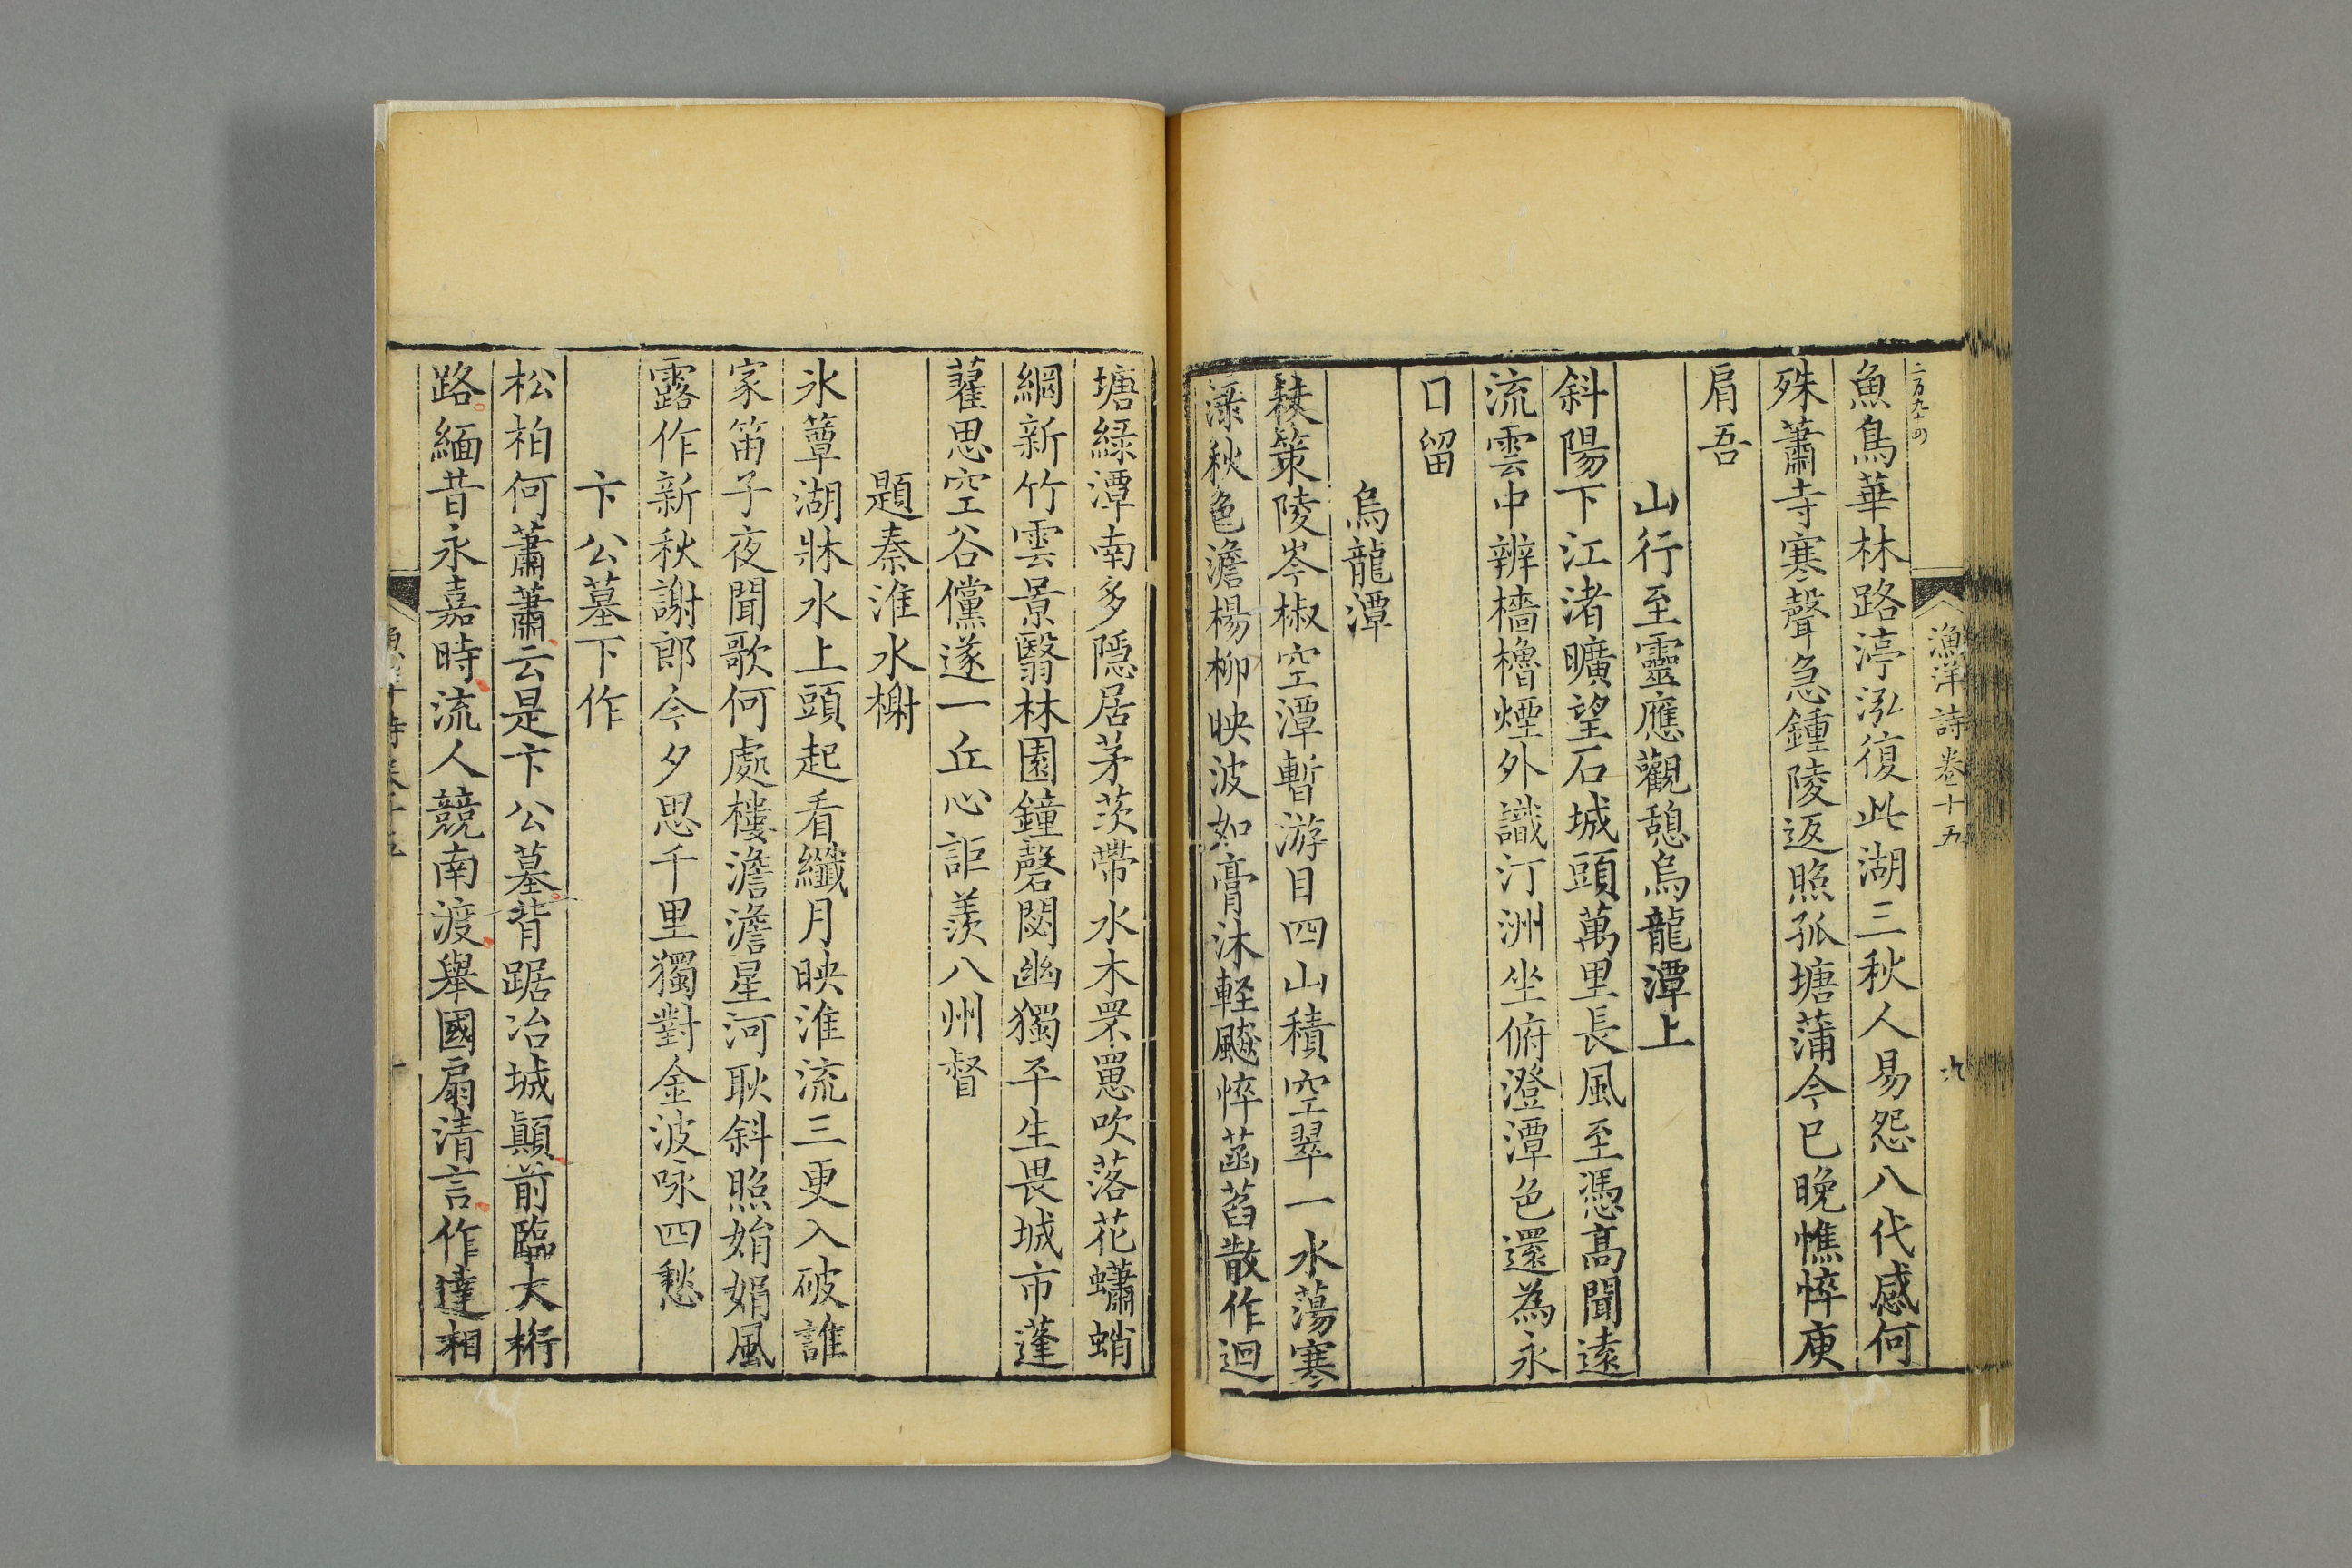 漁洋詩卷十五
九
二百九十四
魚鳥華林路渟泓復此湖三秋人易怨八代感何
殊蕭寺寒聲急鍾陵返照孤塘蒲今已晚憔悴庾
肩吾
山行至靈應觀憩烏龍潭上
斜陽下江渚曠望石城頭萬里長風至憑高聞遠
流雲中辨檣櫓煙外識汀洲坐俯澄潭色還為永
日留
烏龍潭
裌策陵岑椒空潭暫游目四山積空翠一水蕩寒
淥秋色澹楊柳映波如膏沐輕飇悴菡萏散作迴
塘綠潭南多隱居茅茨帶水木罘罳吹落花蠨蛸
網新竹雲景翳林園鐘磬閟幽獨平生畏城市蓬
藋思空谷儻遂一丘心詎羨八州督
題秦淮水榭
氷簟湖牀水上頭起看纖月映淮流三更入破誰
家笛子夜聞歌何處樓澹澹星河耿斜照娟娟風
露作新秋謝郎今夕思千里獨對金波咏四愁
卞公墓下作
松柏何蕭蕭云是卞公墓背踞冶城顛前臨大桁
路緬昔永嘉時流人競南渡舉國扇清言作達相